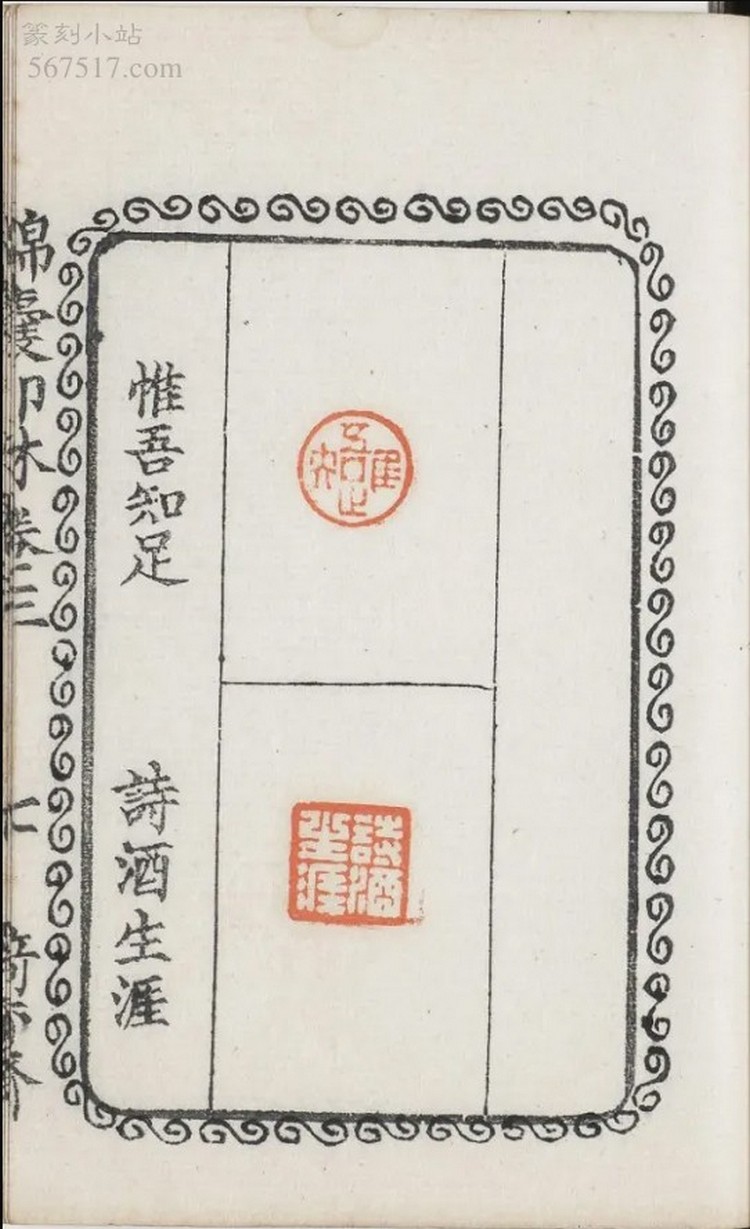 篆刻小站
567517.com
惟吾知足
詩酒生涯
惟吾知足
詩酒生涯
錦囊印林卷三